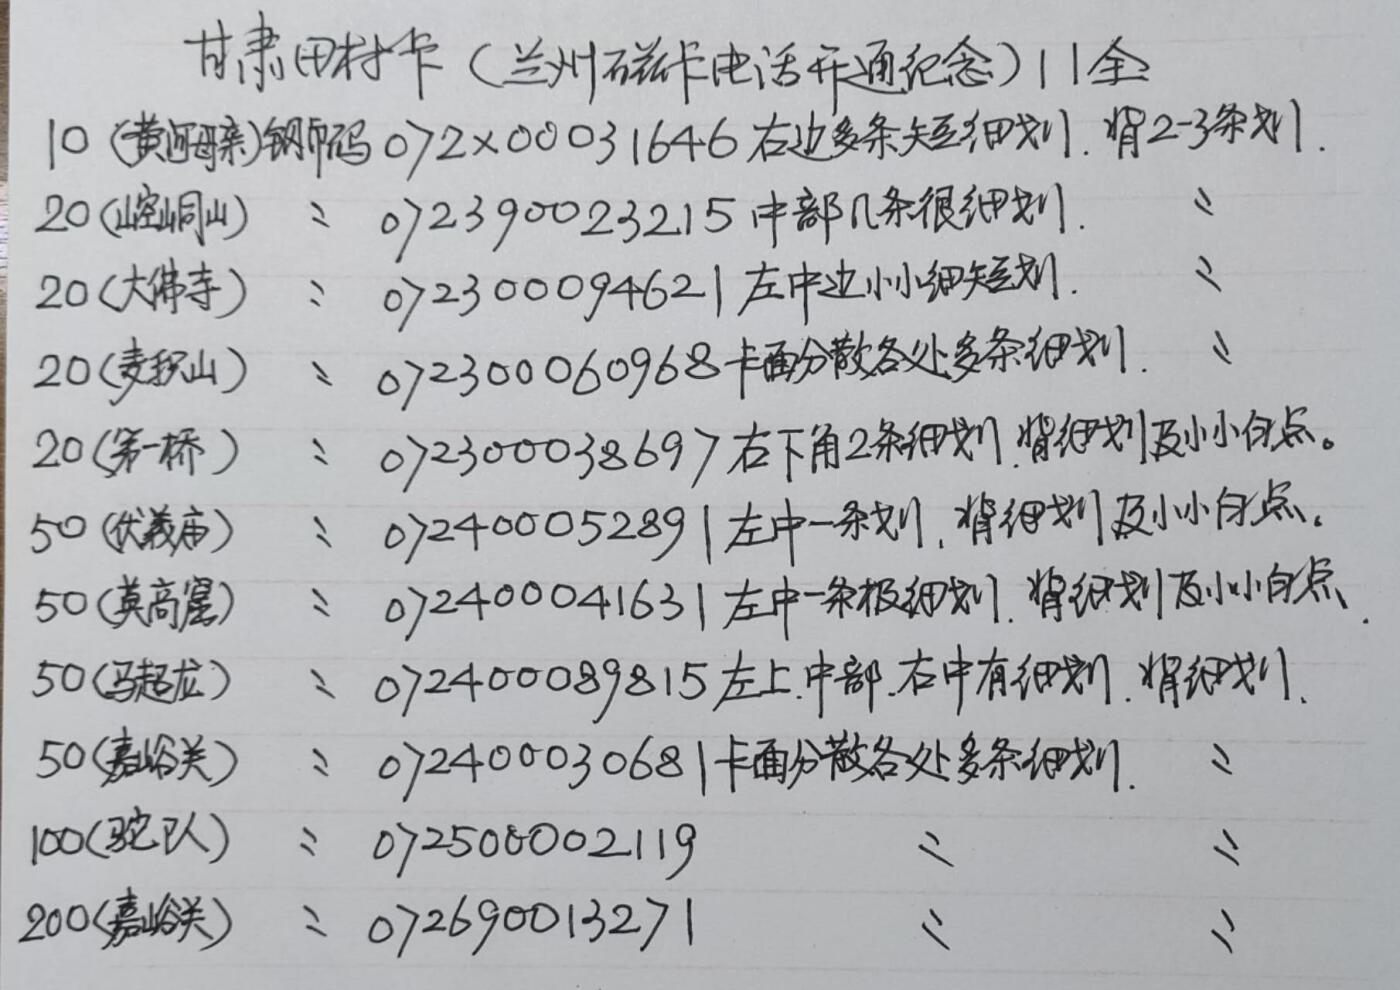 甘肃田村卡（兰州磁卡电话开通纪念）11全
10（黄河母亲）钢印码 072×00031646 右边多条短细划．背2-3条划．
20（崆峒山） 〃 072390023215 中部几条很细划． 〃
20（大佛寺） 〃 072300094621 左中边小小细短划． 〃
20（麦积山） 〃 072300060968 卡面分散各处多条细划． 〃
20（第一桥） 〃 072300038697 右下角2条细划．背细划及小小白点。
50（伏羲庙） 〃 072400052891 左中一条划．背细划及小小白点．
50（莫高窟） 〃 072400041631 左中一条极细划．背细划及小小白点．
50（马超龙） 〃 072400089815 左上．中部．右中有细划．背细划．
50（嘉峪关） 〃 072400030681 卡面分散各处多条细划． 〃
100（驼队） 〃 072500002119 〃 〃
200（嘉峪关） 〃 072690013271 〃 〃